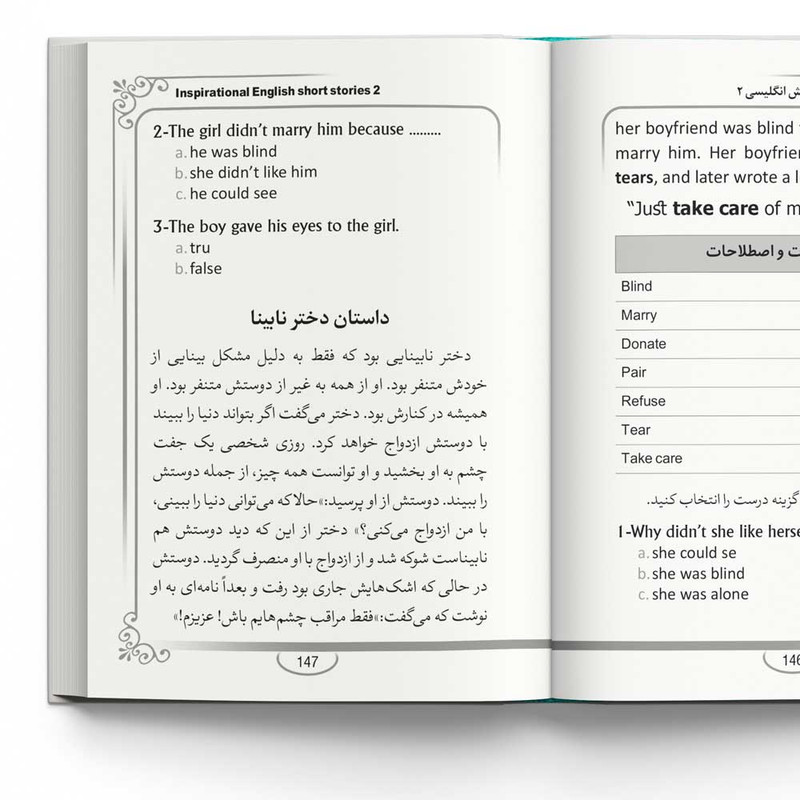 ش انگلیسی ۲
her boyfriend was blind
marry him. Her boyfrien
tears, and later wrote a l
"Just take care of m
ت و اصطلاحات
Blind
Marry
Donate
Pair
Refuse
Tear
Take care
گزینه درست را انتخاب کنید.
1-Why didn't she like herse
a. she could se
b. she was blind
c. she was alone
146
Inspirational English short stories 2
2-The girl didn't marry him because .........
a. he was blind
b. she didn't like him
c. he could see
3-The boy gave his eyes to the girl.
a. tru
b. false
داستان دختر نابینا
دختر نابینایی بود که فقط به دلیل مشکل بینایی از
خودش متنفر بود. او از همه به غیر از دوستش متنفر بود. او
همیشه در کنارش بود. دختر می‌گفت اگر بتواند دنیا را ببیند
با دوستش ازدواج خواهد کرد. روزی شخصی یک جفت
چشم به او بخشید و او توانست همه چیز، از جمله دوستش
را ببیند. دوستش از او پرسید:«حالا که می‌توانی دنیا را ببینی،
با من ازدواج می‌کنی؟» دختر از این که دید دوستش هم
نابیناست شوکه شد و از ازدواج با او منصرف گردید. دوستش
در حالی که اشک‌هایش جاری بود رفت و بعداً نامه‌ای به او
نوشت که می‌گفت:«فقط مراقب چشم‌هایم باش! عزیزم!»
147